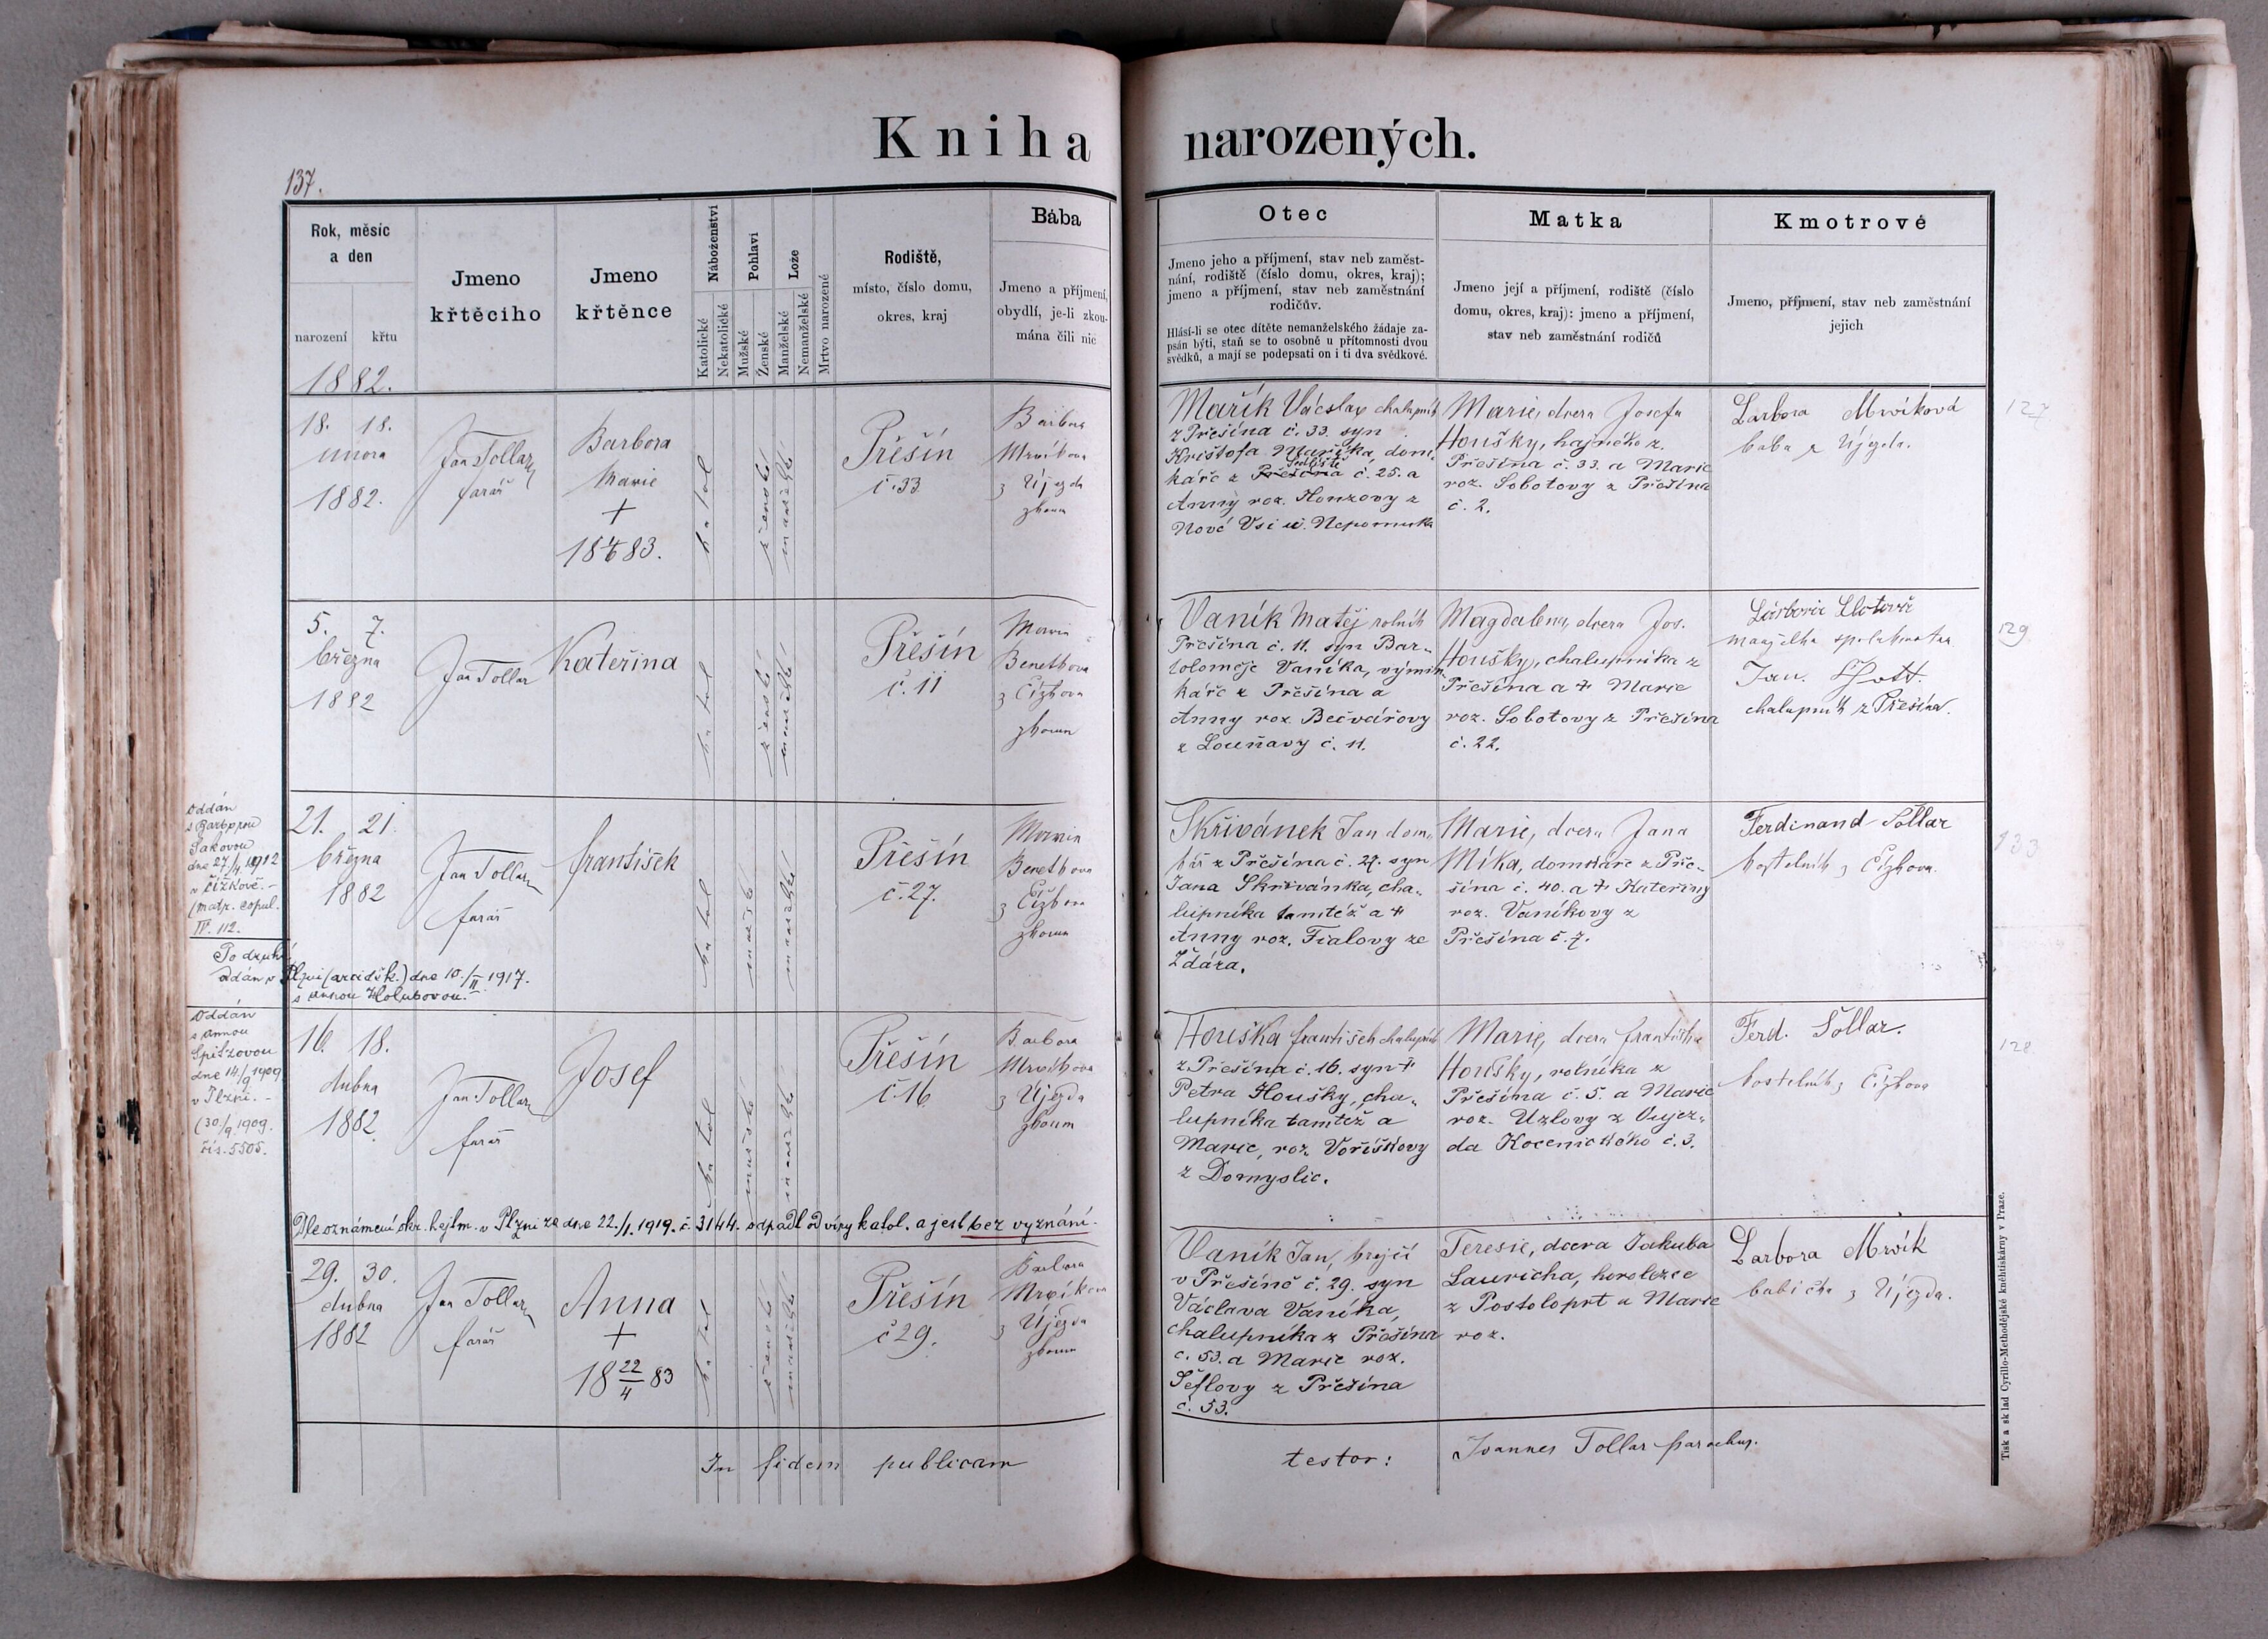 Kniha narozených.
137.
Rok, měsíc
a den
narození křtu
1882.
Jmeno
křtěcího
Jmeno
křtěnce
Náboženství
Katolické
Nekatolické
Pohlaví
Mužské
Ženské
Lože
Manželské
Nemanželské
Mrtvo narozené
Rodiště,
místo, číslo domu,
okres, kraj
Bába
Jmeno a příjmení,
obydlí, je-li zkou-
mána čili nic
Otec
Jmeno jeho a příjmení, stav neb zaměst-
nání, rodiště (číslo domu, okres, kraj);
jmeno a příjmení, stav neb zaměstnání
rodičův.
Hlásí-li se otec dítěte nemanželského žádaje za-
psán býti, staň se to osobně u přítomnosti dvou
svědků, a mají se podepsati on i ti dva svědkové.
Matka
Jmeno její a příjmení, rodiště (číslo
domu, okres, kraj): jmeno a příjmení,
stav neb zaměstnání rodičů
Kmotrové
Jmeno, příjmení, stav neb zaměstnání
jejich
18. 18.
února
1882.
Jan Tollar
farář
Barbora
Marie
+
83.
katol
ženské
manželské
Přešín
č. 33
Barbora
Mrvíkova
z Újezda
zkoum
Mařík Václav chalupník
z Přešína č. 33. syn
Krištofa Maříka, dom.
káře z Přešína č. 25. a
Anny roz. Honzovy z
Nové Vsi u Nepomuka
Marie, dcera Josefa
Houšky, hajného z
Přešína č. 33. a Marie
roz. Sobotovy z Přešína
č. 2.
Barbora Mrvíková
baba z Újezda.
127
5. 7.
března
1882
Jan Tollar
Kateřina
katol
ženské
manželské
Přešín
č. 11
Marie
Benetkova
z Čížkova
zkoum
Vaník Matěj rolník
Přešína č. 11. syn Bar-
toloměje Vaníka, výmin
káře z Přešína a
Anny roz. Bečvářovy
z Louňavy č. 11.
Magdalena, dcera Jos.
Houšky, chalupníka z
Přešína a † Marie
roz. Sobotovy z Přešína
č. 22.
manželka spolukmotra
Jan
chalupník z Přešína.
129
Oddán
s Barborou
Jakovou
dne 27/4. 1912
v Čížkově.-
(matr. copul.
IV. 112.
21. 21.
března
1882
Jan Tollar
farář
František
katol
mužské
manželské
Přešín
č. 27.
Marie
Benetkova
z Čížkova
zkoum
Skřivánek Jan dom.
kář z Přešína č. 27. syn
Jana Skřivánka, cha-
lupníka tamtéž a †
Anny roz. Fialovy ze
Ždára.
Marie, dcera Jana
Míka, domkáře z Pře-
šína č. 40. a † Kateřiny
roz. Vaníkovy z
Přešína č. 7.
Ferdinand Šollar
kostelník z Čížkova.
133
Po druhé
oddán v Plzni (arciděk.) dne 10./II. 1917.
s Annou Holubovou.
Oddán
s Annou
Spitzovou
dne 14./9 1909
v Plzni. -
(30./9. 1909.
čís. 5505.
16. 18.
dubna
1882.
Jan Tollar
farář
Josef
katol
mužské
manželské
Přešín
č. 16
Barbora
Mrvíkova
z Újezda
zkoum
Houška František chalupník
z Přešína č. 16. syn †
Petra Houšky, cha-
lupníka tamtéž a
Marie, roz. Voříškovy
z Domyslic.
Marie, dcera Františka
Houšky, rolníka z
Přešína č. 5. a Marie
roz. Uzlovy z Oujez-
da Kocenického č. 3.
Ferd. Šollar.
kostelník z Čížkova
128
Dle oznámení okr. hejtm. v Plzni ze dne 22./1. 1919. č. 3144. odpadl od víry katol. a jest bez vyznání.
29. 30.
dubna
1882
Jan Tollar
farář
Anna
+
18 22/4 83
katol
ženské
manželské
Přešín
č 29.
Barbora
Mrvíkova
z Újezda
zkoum
Vaník Jan, krejčí
v Přešíně č. 29. syn
Václava Vaníka,
chalupníka z Přešína
č. 53. a Marie roz.
Šeflovy z Přešína
č. 53.
Teresie, dcera Jakuba
Lauricha, horolezce
z Postoloprt a Marie
roz.
Barbora Mrvík
babička z Újezda.
In fidem publicam testor: Joannes Tollar parochus.
Tisk a sklad Cyrillo-Methodějské knihtiskárny v Praze.